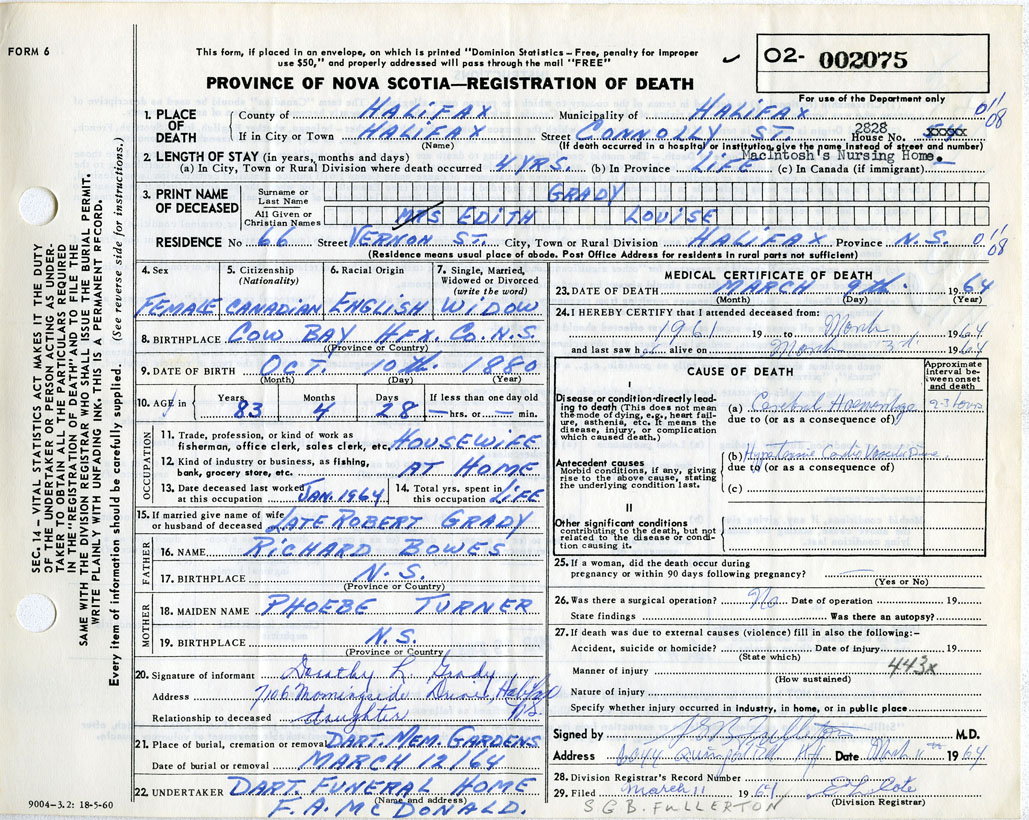 FORM 6
This form, if placed in an envelope, on which is printed "Dominion Statistics – Free, penalty for improper
use $50," and properly addressed will pass through the mail "FREE"
PROVINCE OF NOVA SCOTIA—REGISTRATION OF DEATH
O2- 002075
For use of the Department only
1. PLACE OF DEATH
County of HALIFAX Municipality of HALIFAX 011 08
If in City or Town HALIFAX Street CONNOLLY ST. House No. 2828 xxxxx
(Name) (If death occurred in a hospital or institution, give the name instead of street and number)
MacIntosh's Nursing Home.
2. LENGTH OF STAY (in years, months and days)
(a) In City, Town or Rural Division where death occurred 4 YRS. (b) In Province LIFE (c) In Canada (if immigrant) —
3. PRINT NAME OF DECEASED
Surname or Last Name GRADY
All Given or Christian Names MRS EDITH LOUISE
RESIDENCE No 66 Street VERNON ST. City, Town or Rural Division HALIFAX Province N.S. 011 08
(Residence means usual place of abode. Post Office Address for residents in rural parts not sufficient)
4. Sex FEMALE
5. Citizenship (Nationality) CANADIAN
6. Racial Origin ENGLISH
7. Single, Married, Widowed or Divorced (write the word) WIDOW
8. BIRTHPLACE COW BAY HFX. CO. N.S.
(Province or Country)
9. DATE OF BIRTH OCT. 10th 1880
(Month) (Day) (Year)
10. AGE in Years 83 Months 4 Days 28 If less than one day old — hrs. or — min.
OCCUPATION
11. Trade, profession, or kind of work as fisherman, office clerk, sales clerk, etc. HOUSEWIFE
12. Kind of industry or business, as fishing, bank, grocery store, etc. AT HOME
13. Date deceased last worked at this occupation JAN. 1964
14. Total yrs. spent in this occupation LIFE
15. If married give name of wife or husband of deceased LATE ROBERT GRADY
FATHER
16. NAME RICHARD BOWES
17. BIRTHPLACE N.S.
(Province or Country)
MOTHER
18. MAIDEN NAME PHOEBE TURNER
19. BIRTHPLACE N.S.
(Province or Country)
20. Signature of informant Dorothy L. Grady
Address 7106 Morningside Drive Halifax N.S.
Relationship to deceased daughter
21. Place of burial, cremation or removal DART. MEM. GARDENS
Date of burial or removal MARCH 12/64
22. UNDERTAKER DART. FUNERAL HOME
(Name and address)
F. A. McDONALD.
9004–3.2: 18-5-60
MEDICAL CERTIFICATE OF DEATH
23. DATE OF DEATH MARCH 9th. 1964
(Month) (Day) (Year)
24. I HEREBY CERTIFY that I attended deceased from:
1961 19 to March 1964
and last saw her alive on March 3rd 1964
CAUSE OF DEATH
Approximate interval between onset and death
I
Disease or condition directly leading to death (This does not mean the mode of dying, e.g., heart failure, asthenia, etc. It means the disease, injury, or complication which caused death.)
(a) Cerebral Haemorrhage 2-3 hours
due to (or as a consequence of)
Antecedent causes
Morbid conditions, if any, giving rise to the above cause, stating the underlying condition last.
(b) Hypertensive Cardio Vascular
due to (or as a consequence of)
(c)
II
Other significant conditions
contributing to the death, but not related to the disease or condition causing it.
25. If a woman, did the death occur during
pregnancy or within 90 days following pregnancy? —
(Yes or No)
26. Was there a surgical operation? No Date of operation 19
State findings Was there an autopsy?
27. If death was due to external causes (violence) fill in also the following:–
Accident, suicide or homicide? Date of injury 19
(State which)
Manner of injury 443x
(How sustained)
Nature of injury
Specify whether injury occurred in industry, in home, or in public place
Signed by S G B Fullerton M.D.
Address 6044 Quinpool Rd Hfx Date March 11th 1964
28. Division Registrar's Record Number
29. Filed March 11 1964
(Division Registrar)
S G B. FULLERTON
SEC. 14 – VITAL STATISTICS ACT MAKES IT THE DUTY
OF THE UNDERTAKER OR PERSON ACTING AS UNDER-
TAKER TO OBTAIN ALL THE PARTICULARS REQUIRED
IN THE "REGISTRATION OF DEATH" AND TO FILE THE
SAME WITH THE DIVISION REGISTRAR WHO SHALL ISSUE THE BURIAL PERMIT.
WRITE PLAINLY WITH UNFADING INK. THIS IS A PERMANENT RECORD.
Every item of information should be carefully supplied. (See reverse side for instructions.)